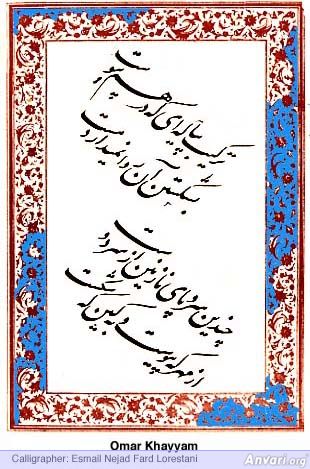 ترکیب پیاله‌ای که در هم پیوست
بشکستن آن روا نمیدارد مست
چندین سر و پای نازنین از سر و دست
از مهر که پیوست و به کین که شکست
Omar Khayyam
Calligrapher: Esmail Nejad Fard Lorestani
Anvari.org